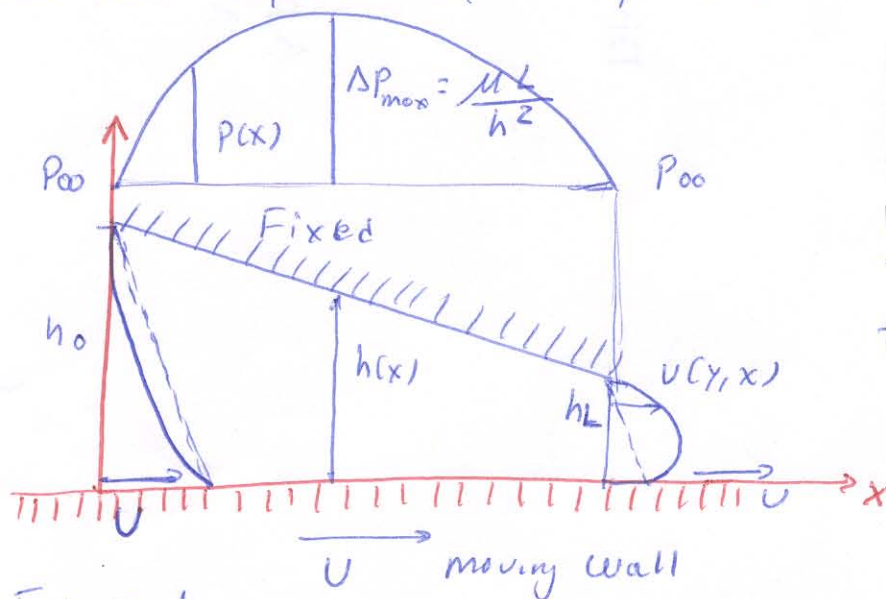 ΔPmax = μL/h²
P(x)
P∞
P∞
Fixed
h0
h(x)
hL
U(y,x)
U
U
x
U moving wall